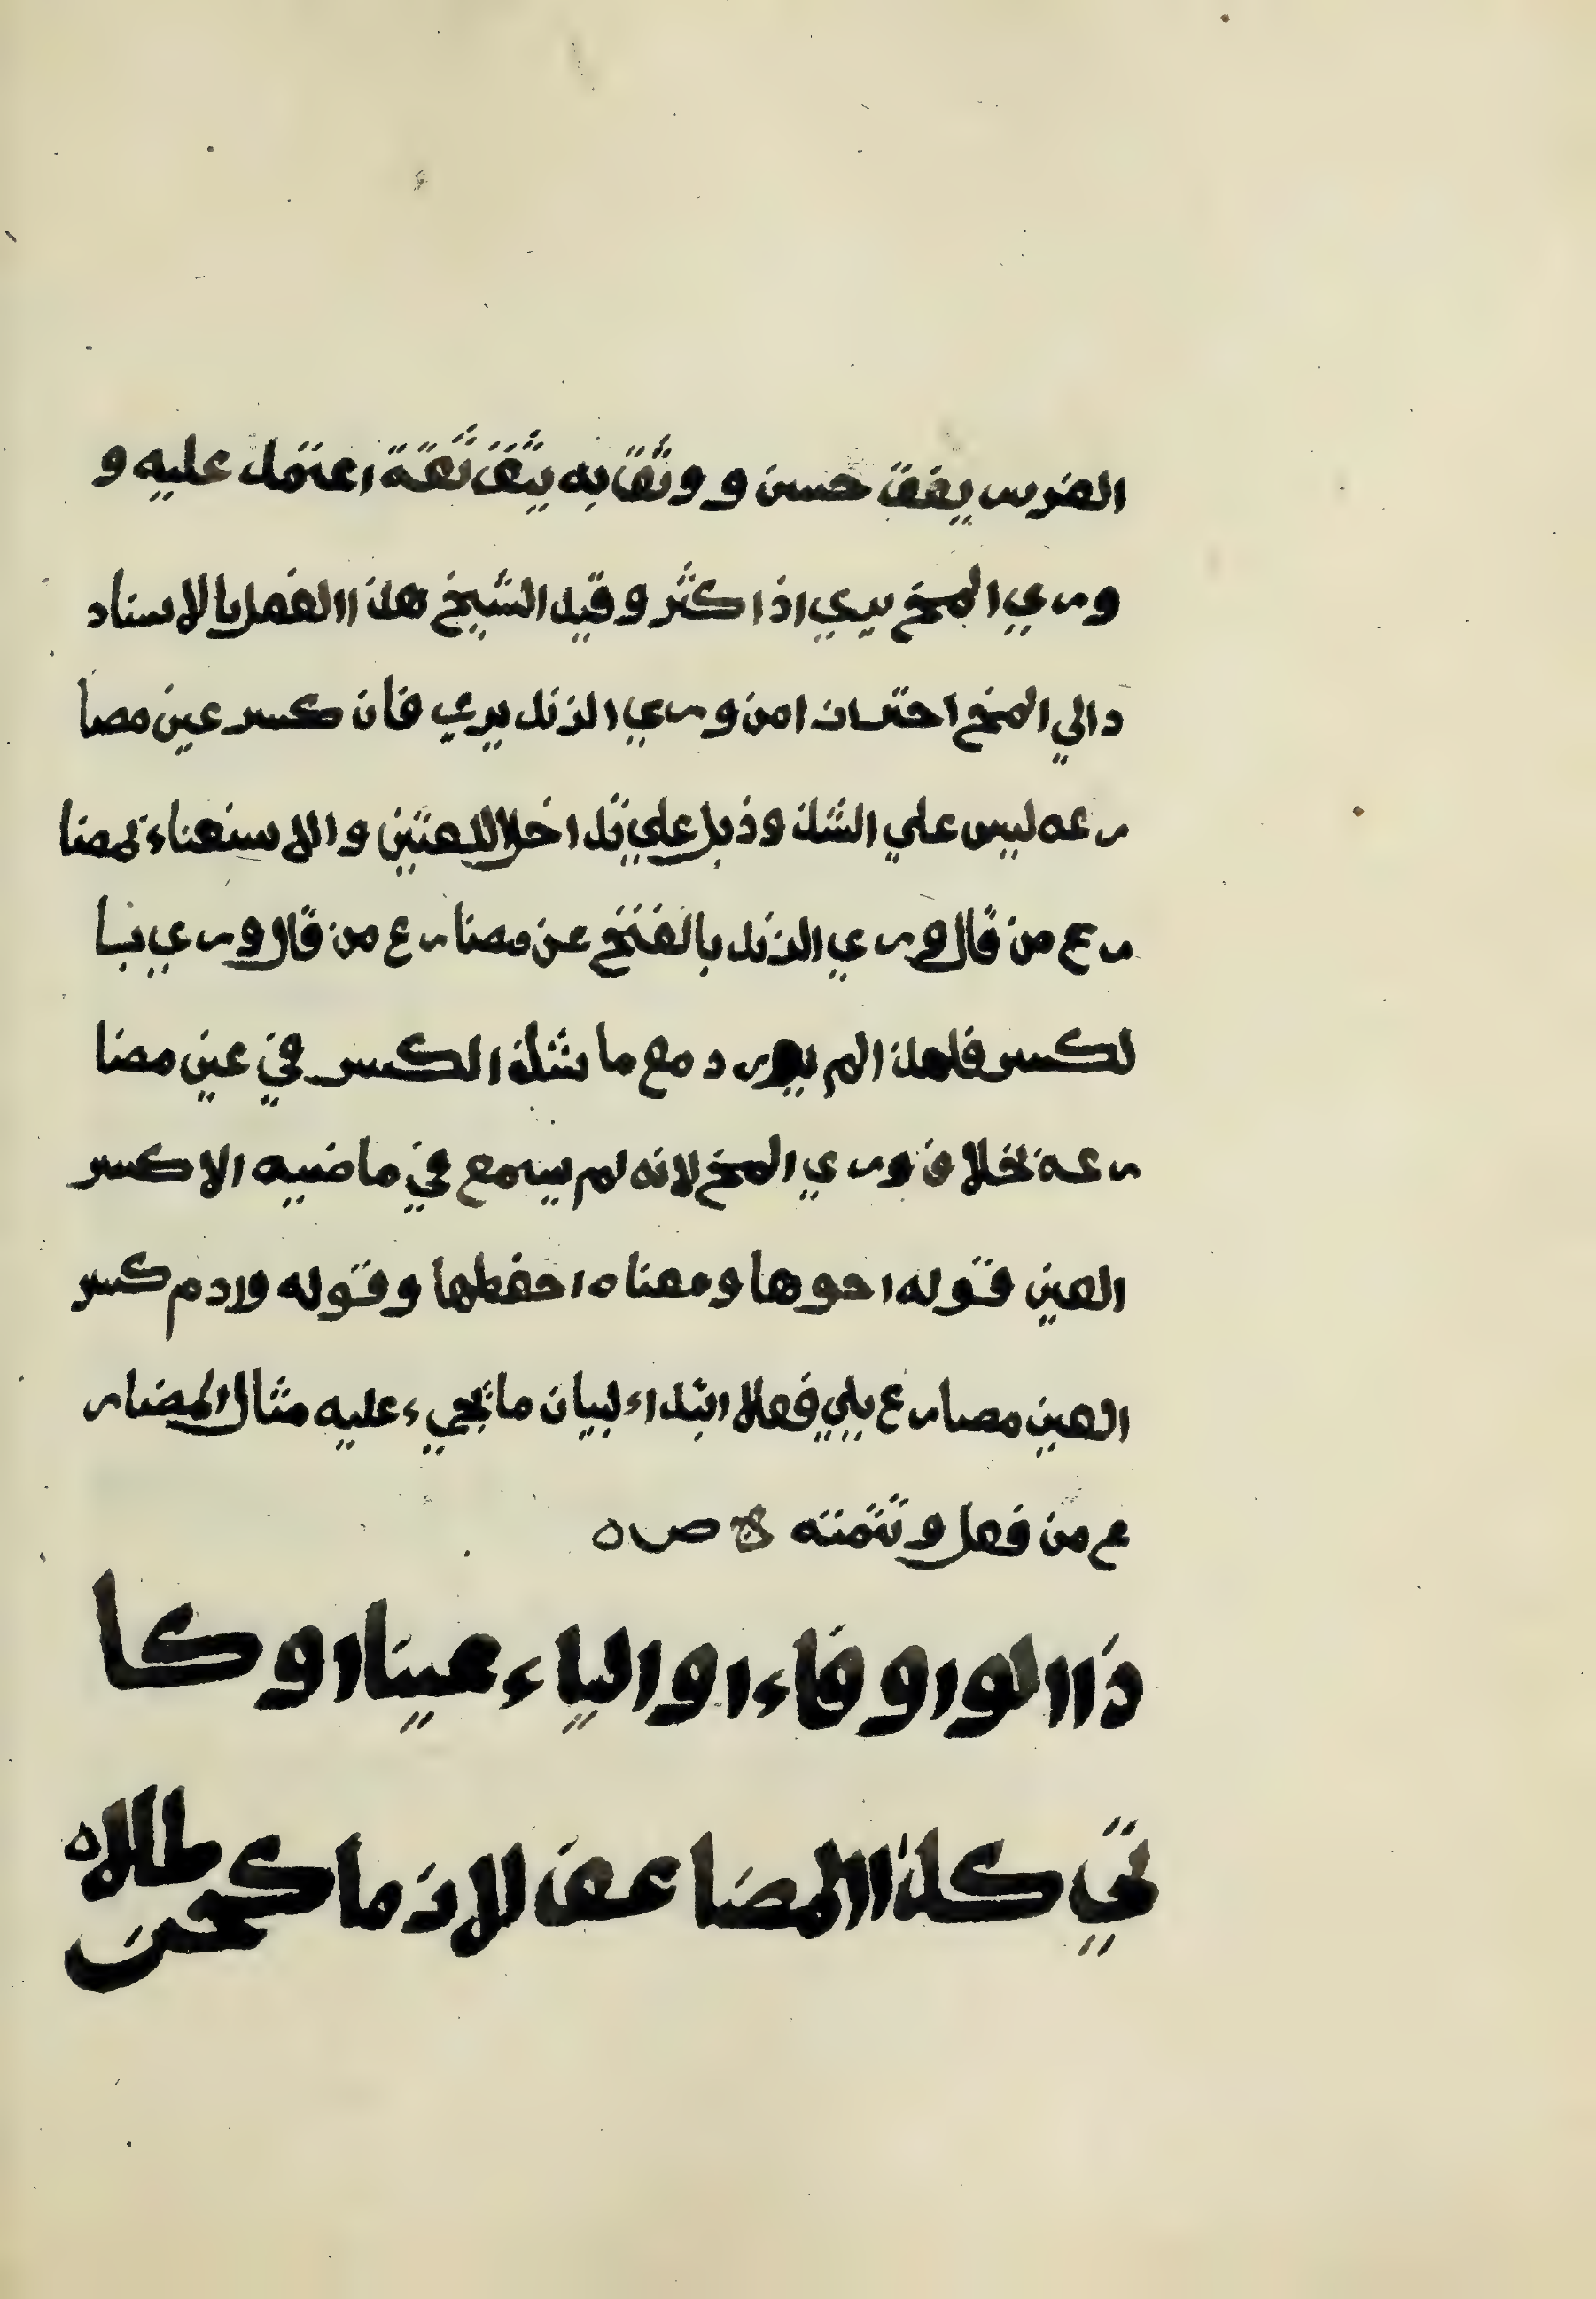 الفرس يفق حسن و وثق به يثق ثقة اعتمد عليه و
وري المخ يري اذا كثر و قيد الشيخ هذا الفعل بالاسناد
د الي المخ احترازا من وري الزند يري فان كسر عين مضا
رعه ليس علي الشذ وذ بل علي تداخل اللغتين و الاستغناء بمضا
رع من قال وري الزند بالفتح عن مضارع من قال وري با
لكسر فلهذا لم يورد مع ما شذ الكسر في عين مضا
رعه بخلاف وري المخ لانه لم يسمع في ماضيه الا كسر
العين قوله احوها ومعناه احفظها وقوله وادم كسر
العين مضارع يلي فعلا ابتداء لبيان ما يجيء عليه مثال المضار
ع من فعل و تتمته ص ه
ذا الواو فاء او الياء عينا او كا
تي كذا المضاعف لازما كحن طلاه